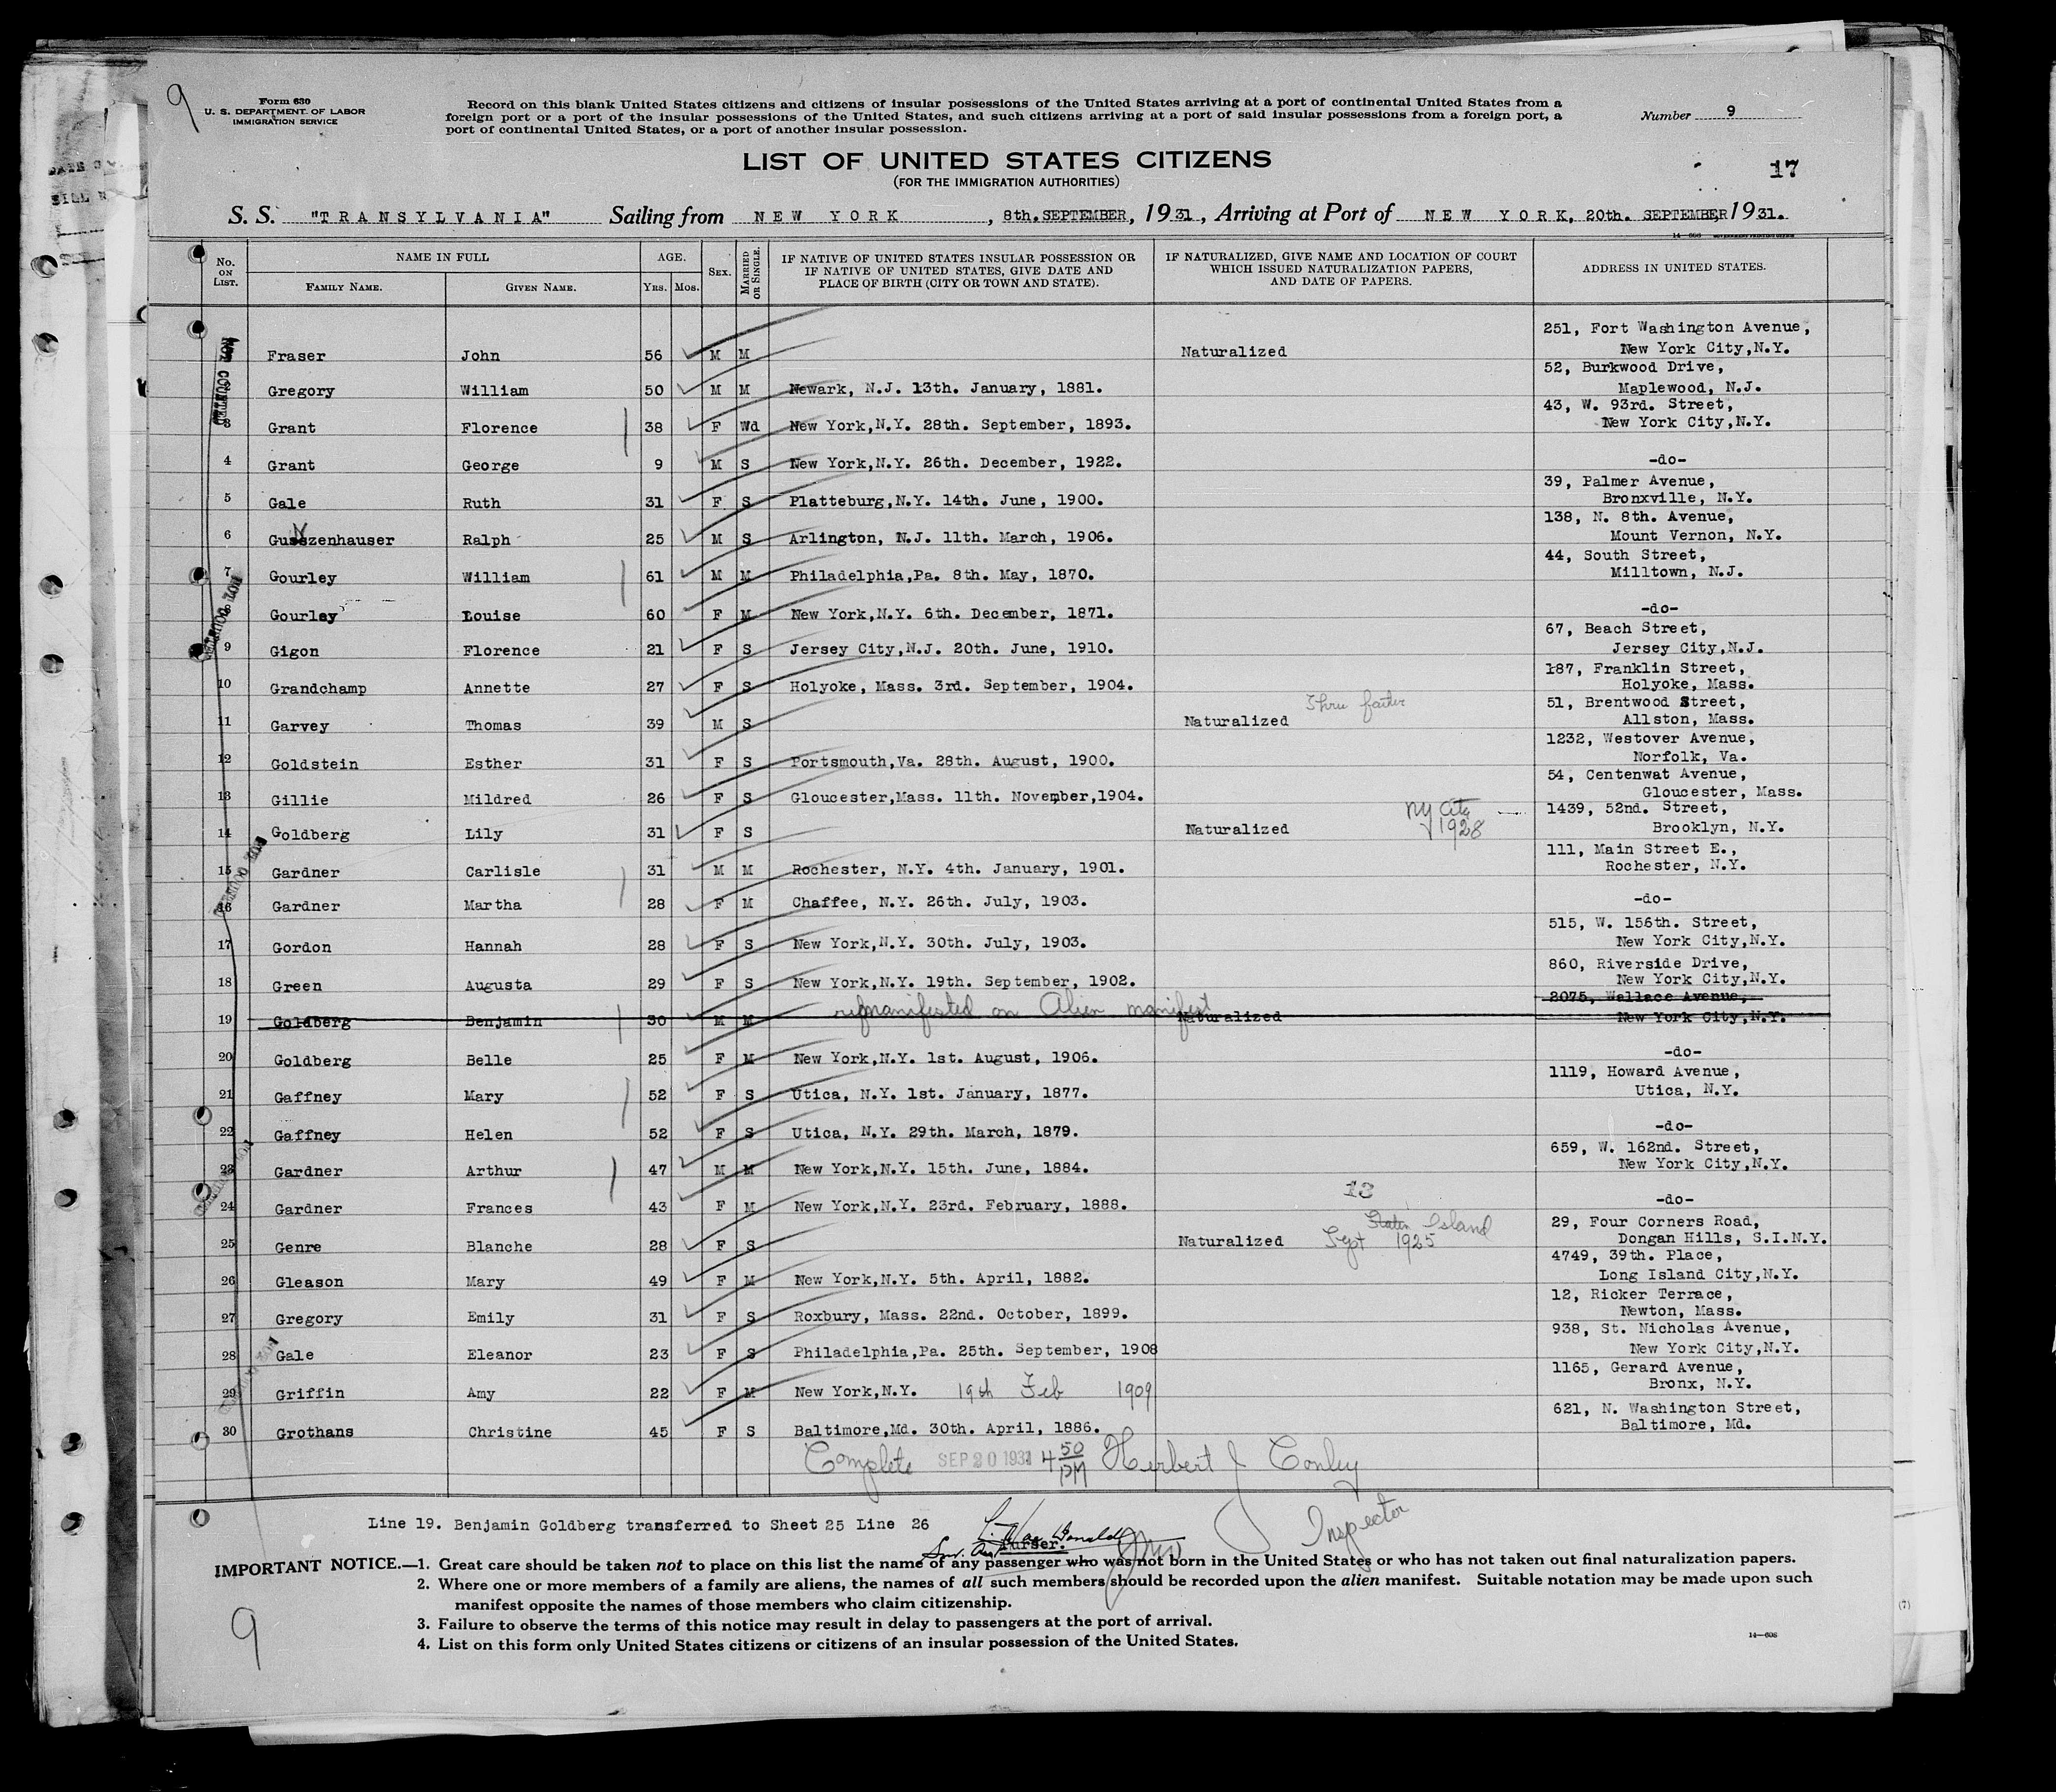 9
Form 630
U. S. DEPARTMENT OF LABOR
IMMIGRATION SERVICE
Record on this blank United States citizens and citizens of insular possessions of the United States arriving at a port of continental United States from a
foreign port or a port of the insular possessions of the United States, and such citizens arriving at a port of said insular possessions from a foreign port, a
port of continental United States, or a port of another insular possession.
Number 9
LIST OF UNITED STATES CITIZENS
(FOR THE IMMIGRATION AUTHORITIES)
17
S. S. "TRANSYLVANIA" Sailing from NEW YORK, 8th. SEPTEMBER, 1931, Arriving at Port of NEW YORK, 20th. SEPTEMBER, 1931.
No. ON LIST. NAME IN FULL FAMILY NAME. GIVEN NAME. AGE. YRS. MOS. SEX. MARRIED OR SINGLE. IF NATIVE OF UNITED STATES INSULAR POSSESSION OR IF NATIVE OF UNITED STATES, GIVE DATE AND PLACE OF BIRTH (CITY OR TOWN AND STATE). IF NATURALIZED, GIVE NAME AND LOCATION OF COURT WHICH ISSUED NATURALIZATION PAPERS, AND DATE OF PAPERS. ADDRESS IN UNITED STATES.
NOT COUNTED
Fraser John 56 M M Naturalized 251, Fort Washington Avenue, New York City,N.Y.
Gregory William 50 M M Newark, N.J. 13th. January, 1881. 52, Burkwood Drive, Maplewood, N.J.
3 Grant Florence 38 F Wd New York,N.Y. 28th. September, 1893. 43, W. 93rd. Street, New York City,N.Y.
4 Grant George 9 M S New York,N.Y. 26th. December, 1922. -do-
5 Gale Ruth 31 F S Platteburg,N.Y. 14th. June, 1900. 39, Palmer Avenue, Bronxville, N.Y.
6 Gunszenhauser Ralph 25 M S Arlington, N.J. 11th. March, 1906. 138, N. 8th. Avenue, Mount Vernon, N.Y.
7 Gourley William 61 M M Philadelphia,Pa. 8th. May, 1870. 44, South Street, Milltown, N.J.
NOT COUNTED
Gourley Louise 60 F M New York,N.Y. 6th. December, 1871. -do-
9 Gigon Florence 21 F S Jersey City,N.J. 20th. June, 1910. 67, Beach Street, Jersey City,N.J.
10 Grandchamp Annette 27 F S Holyoke, Mass. 3rd. September, 1904. 187, Franklin Street, Holyoke, Mass.
11 Garvey Thomas 39 M S Naturalized Thru father 51, Brentwood Street, Allston, Mass.
12 Goldstein Esther 31 F S Portsmouth,Va. 28th. August, 1900. 1232, Westover Avenue, Norfolk, Va.
13 Gillie Mildred 26 F S Gloucester,Mass. 11th. November,1904. 54, Centenwat Avenue, Gloucester, Mass.
14 Goldberg Lily 31 F S Naturalized NY City 1928 1439, 52nd. Street, Brooklyn, N.Y.
15 Gardner Carlisle 31 M M Rochester, N.Y. 4th. January, 1901. 111, Main Street E., Rochester, N.Y.
16 Gardner Martha 28 F M Chaffee, N.Y. 26th. July, 1903. -do-
17 Gordon Hannah 28 F S New York,N.Y. 30th. July, 1903. 515, W. 156th. Street, New York City,N.Y.
18 Green Augusta 29 F S New York,N.Y. 19th. September, 1902. 860, Riverside Drive, New York City,N.Y.
19 Goldberg Benjamin 30 M M remanifested on Alien manifest Naturalized 2075, Wallace Avenue, New York City,N.Y.
20 Goldberg Belle 25 F M New York,N.Y. 1st. August, 1906. -do-
21 Gaffney Mary 52 F S Utica, N.Y. 1st. January, 1877. 1119, Howard Avenue, Utica, N.Y.
22 Gaffney Helen 52 F S Utica, N.Y. 29th. March, 1879. -do-
23 Gardner Arthur 47 M M New York,N.Y. 15th. June, 1884. 659, W. 162nd. Street, New York City,N.Y.
24 Gardner Frances 43 F M New York,N.Y. 23rd. February, 1888. 13 -do-
25 Genre Blanche 28 F S Naturalized Staten Island Sept 1925 29, Four Corners Road, Dongan Hills, S.I.N.Y.
26 Gleason Mary 49 F M New York,N.Y. 5th. April, 1882. 4749, 39th. Place, Long Island City,N.Y.
27 Gregory Emily 31 F S Roxbury, Mass. 22nd. October, 1899. 12, Ricker Terrace, Newton, Mass.
28 Gale Eleanor 23 F S Philadelphia,Pa. 25th. September, 1908 938, St. Nicholas Avenue, New York City,N.Y.
29 Griffin Amy 22 F M New York,N.Y. 19th Feb 1909 1165, Gerard Avenue, Bronx, N.Y.
30 Grothans Christine 45 F S Baltimore,Md. 30th. April, 1886. 621, N. Washington Street, Baltimore, Md.
Complete SEP 20 1931 4 50 PM Herbert J Conley
Inspector
Line 19. Benjamin Goldberg transferred to Sheet 25 Line 26
Purser.
IMPORTANT NOTICE.—1. Great care should be taken not to place on this list the name of any passenger who was not born in the United States or who has not taken out final naturalization papers.
2. Where one or more members of a family are aliens, the names of all such members should be recorded upon the alien manifest. Suitable notation may be made upon such
manifest opposite the names of those members who claim citizenship.
3. Failure to observe the terms of this notice may result in delay to passengers at the port of arrival.
4. List on this form only United States citizens or citizens of an insular possession of the United States.
9
14—608